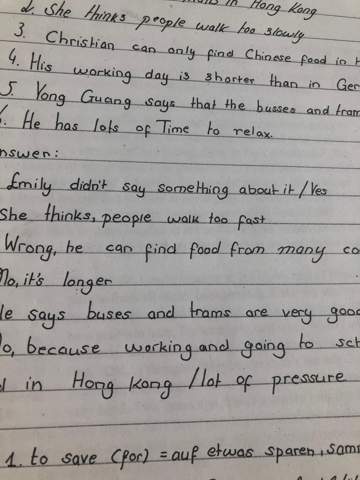 in Hong Kong
2. She thinks people walk too slowly
3. Christian can only find Chinese food in
4. His working day is shorter than in Ger
5. Yong Guang says that the busses and tram
He has lots of Time to relax.
nswer:
Emily didn't say something about it / Yes
She thinks, people walk too fast
Wrong, he can find food from many co
No, it's longer
He says buses and trams are very good
No, because working and going to sch
in Hong Kong / lot of pressure
1. to save (for) = auf etwas sparen, sam